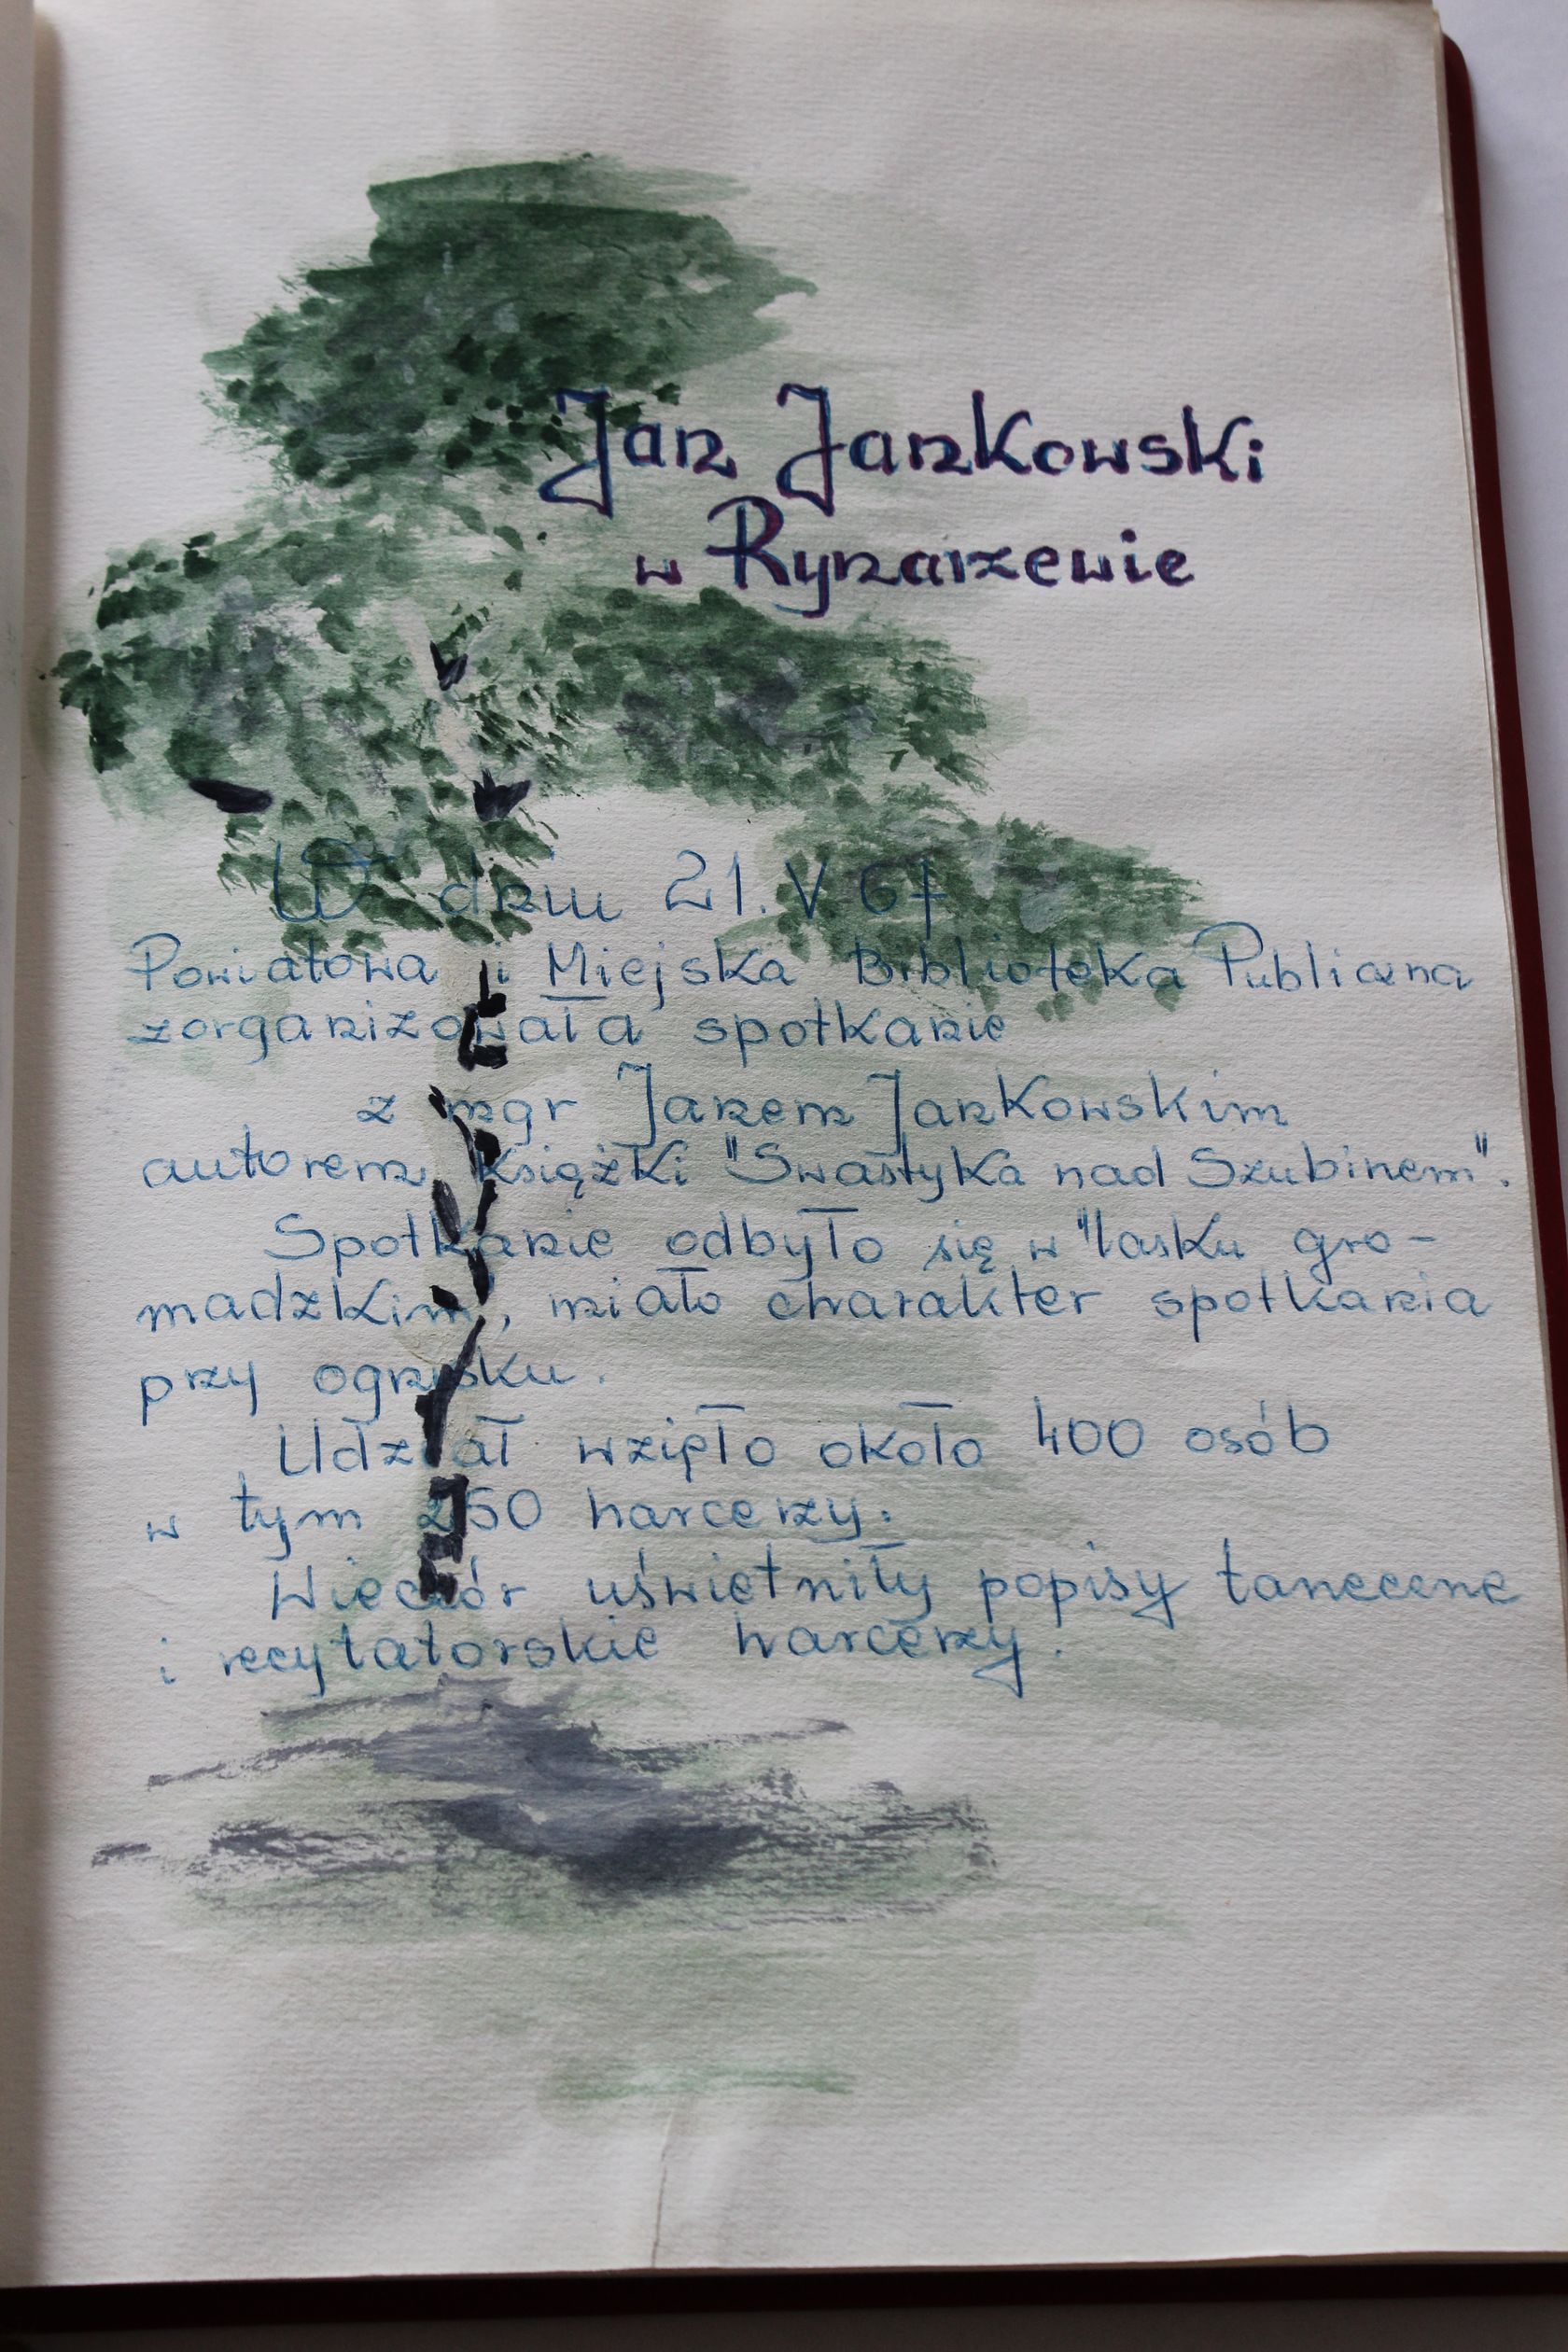 Jan Jankowski
w Rynarzewie
W dniu 21.V.67
Powiatowa i Miejska Biblioteka Publiczna
zorganizowała spotkanie
z mgr Janem Jankowskim
autorem książki "Swastyka nad Szubinem".
Spotkanie odbyło się w "lasku gro-
madzkim, miało charakter spotkania
przy ognisku.
Udział wzięło około 400 osób
w tym 250 harcerzy.
Wieczór uświetniły popisy taneczne
i recytatorskie harcerzy.